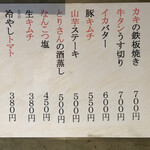 カキの鉄板焼き 700
牛タンうす切り 700
イカバター 600
豚キムチ 550
山芋ステーキ 500
とりさんの酒蒸し 500
なんこつ塩 450
生キムチ 380
冷やしトマト 380